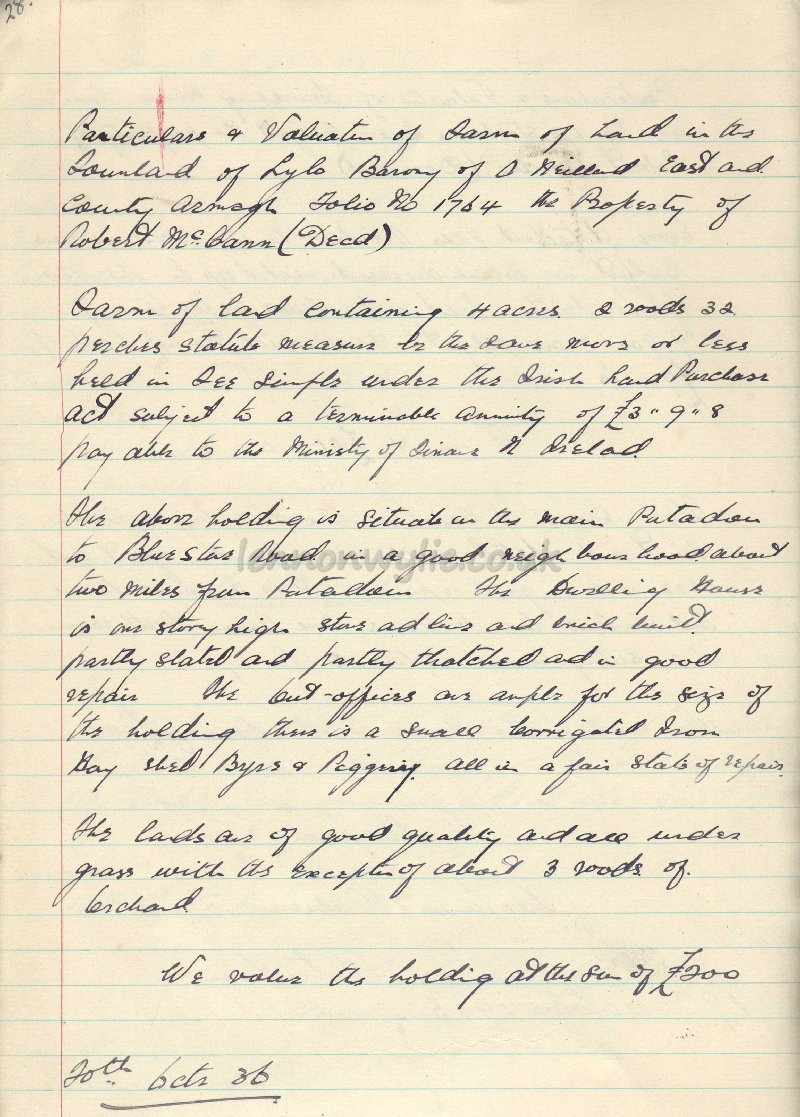 28.
Particulars & Valuation of Farm of Land in the
Townland of Lylo Barony of O Neilland East and
County Armagh Folio No 1764 the Property of
Robert McCann (Decd)
Farm of land containing 4 acres 2 roods 32
perches statute measure be the same more or less
held in Fee Simple under the Irish Land Purchase
Act subject to a terminable annuity of £3 " 9 " 8
payable to the Ministry of Finance N Ireland.
The above holding is situate on the main Portadown
to Bluestone Road in a good neighbourhood about
lennonwylie.co.uk
two miles from Portadown The Dwelling House
is one story high stone and lime and brick built
partly slated and partly thatched and in good
repair The out-offices are ample for the size of
the holding there is a small Corrigated Iron
Hay shed Byre & Piggery all in a fair state of repair.
The lands are of good quality and all under
grass with the exception of about 3 roods of
Orchard
We value the holding at the sum of £200
20th Octr 36